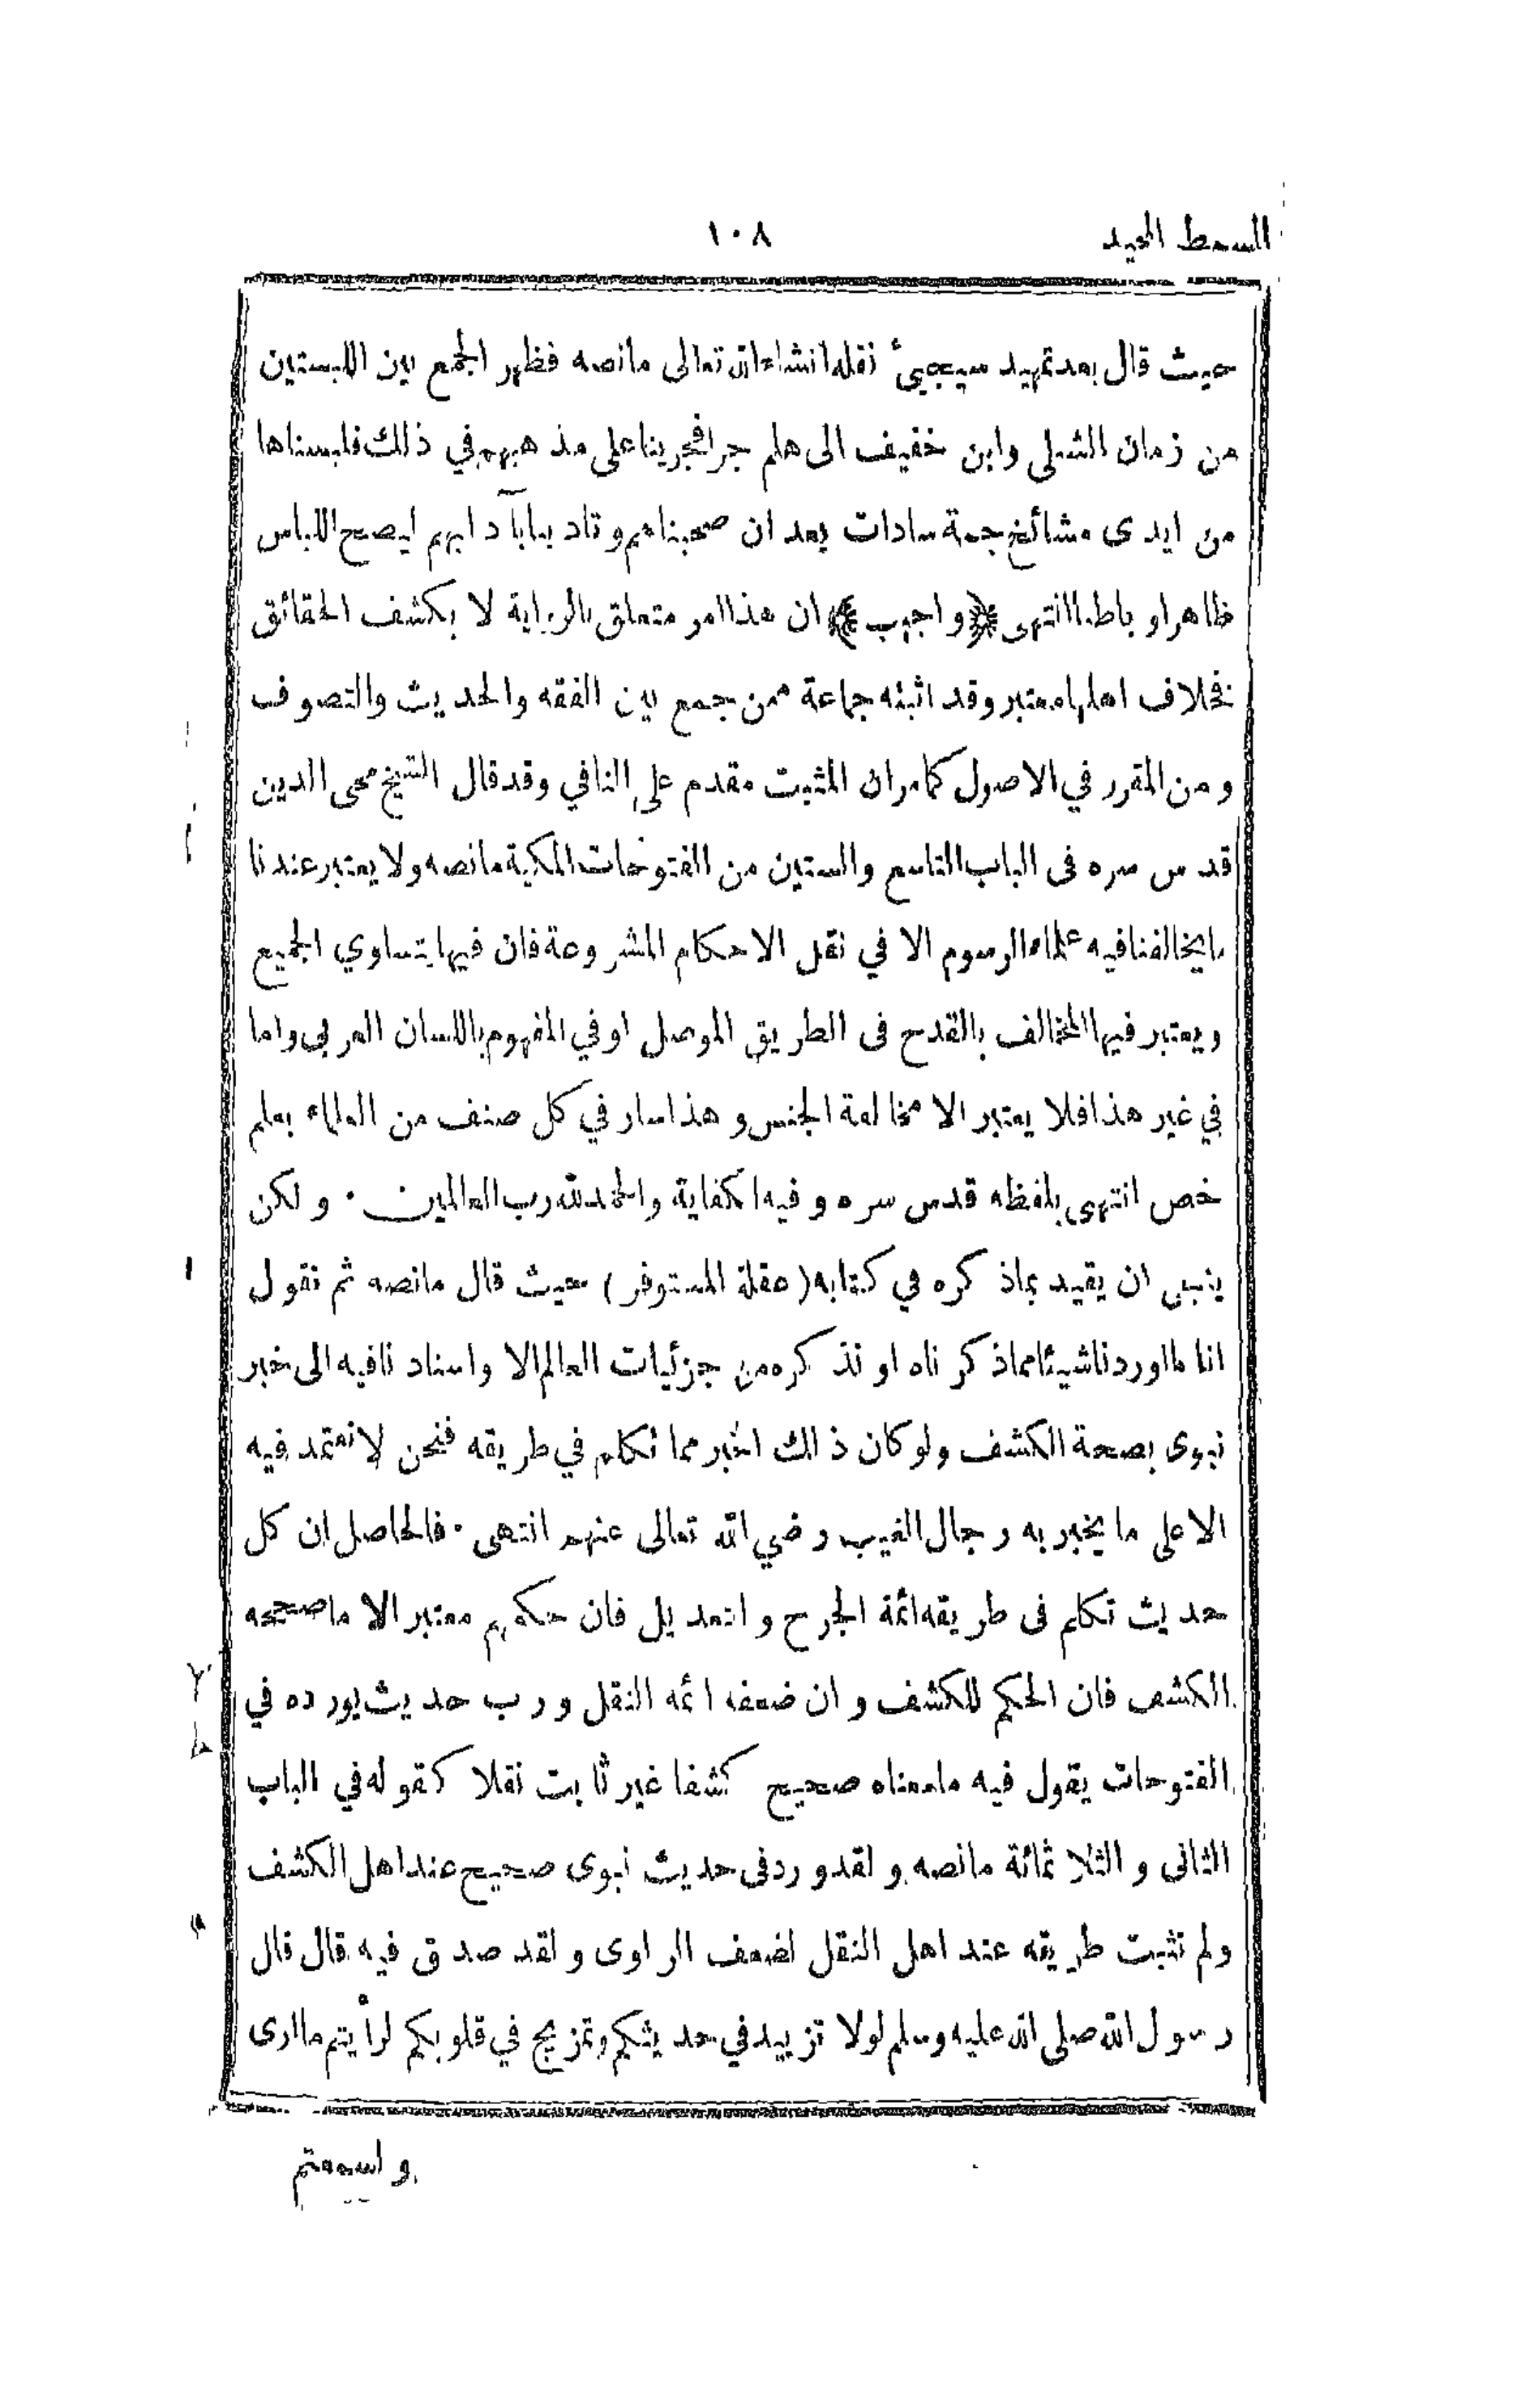 السمط المجيد
١٠٨
حيث قال بعد تمهيد سيجيئ نقله انشاء الله تعالى مانصه فظهر الجمع بين اللبستين
من زمان الشبلى وابن خفيف الى هلم جرا فجرينا على مذ هبهم في ذلك فلبسناها
من ايدى مشائخ جمة سادات بعد ان صحبناهم و تاد بنا بآ د ابهم ليصح اللباس
ظاهرا و باطنا انتهى ﴿ و اجيب ﴾ ان هذا امر متعلق بالرواية لا بكشف الحقائق
فخلاف اهلها معتبر وقد اثبته جماعة ممن جمع بين الفقه والحد يث والتصو ف
و من المقرر في الاصول كما مر ان المثبت مقدم على النافي وقد قال الشيخ محى الدين
قد س سره فى الباب التاسع والستين من الفتوحات المكية مانصه ولا يعتبر عند نا
ما يخالفنا فيه علماء الرسوم الا في نقل الاحكام المشر وعة فان فيها يتساوي الجميع
و يعتبر فيها المخالف بالقدح فى الطر يق الموصل او في المفهوم باللسان العر بى واما
في غير هذا فلا يعتبر الا مخالفة الجنس و هذا سار في كل صنف من العلماء بعلم
خص انتهى بلفظه قدس سره و فيه الكفاية والحمد لله رب العالمين · و لكن
ينبغى ان يقيد بماذ كره في كتابه (عقلة المستوفز) حيث قال مانصه ثم نقول
انا ما اوردنا شيئا مماذ كر ناه او نذ كره من جزئيات العالم الا واسناد نا فيه الى خبر
نبوى بصحة الكشف ولو كان ذ الك الخبر مما تكلم في طر يقه فنحن لا نعتمد فيه
الا على ما يخبر به رجال الغيب رضي الله تعالى عنهم انتهى · فالحاصل ان كل
حد يث تكلم فى طر يقه ائمة الجرح و التعد يل فان حكمهم معتبر الا ما صححه
الكشف فان الحكم للكشف و ان ضعفه ائمه النقل و ر ب حد يث يور ده في
الفتوحات يقول فيه مامعناه صحيح كشفا غير ثا بت نقلا كقو له في الباب
الثانى و الثلا ثمائة مانصه و لقد ورد فى حديث نبوى صحيح عند اهل الكشف
ولم تثبت طر يقه عند اهل النقل لضعف الر اوى و لقد صد ق فيه قال قال
ر سول الله صلى الله عليه وسلم لولا تزييد في حد يثكم وتمزيج في قلوبكم لرأيتم ما ارى
و لسمعتم